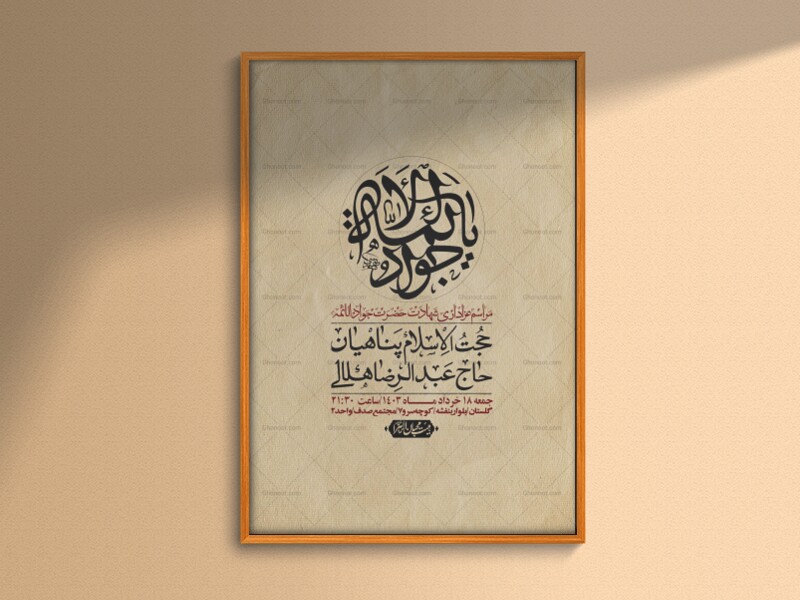 یا جواد الائمة
مراسم عزاداری شهادت حضرت جواد الائمه
حُجتُ الاِسلام پَناهیان
حاج عَبدالرِضا هلالی
جمعه ۱۸ خرداد مـــاه ۱۴۰۳/ساعت ۲۱:۳۰
گلستان/بلوار بنفشه/کوچه سرو۷/مجتمع صدف/واحد۲
Ghonoot.com